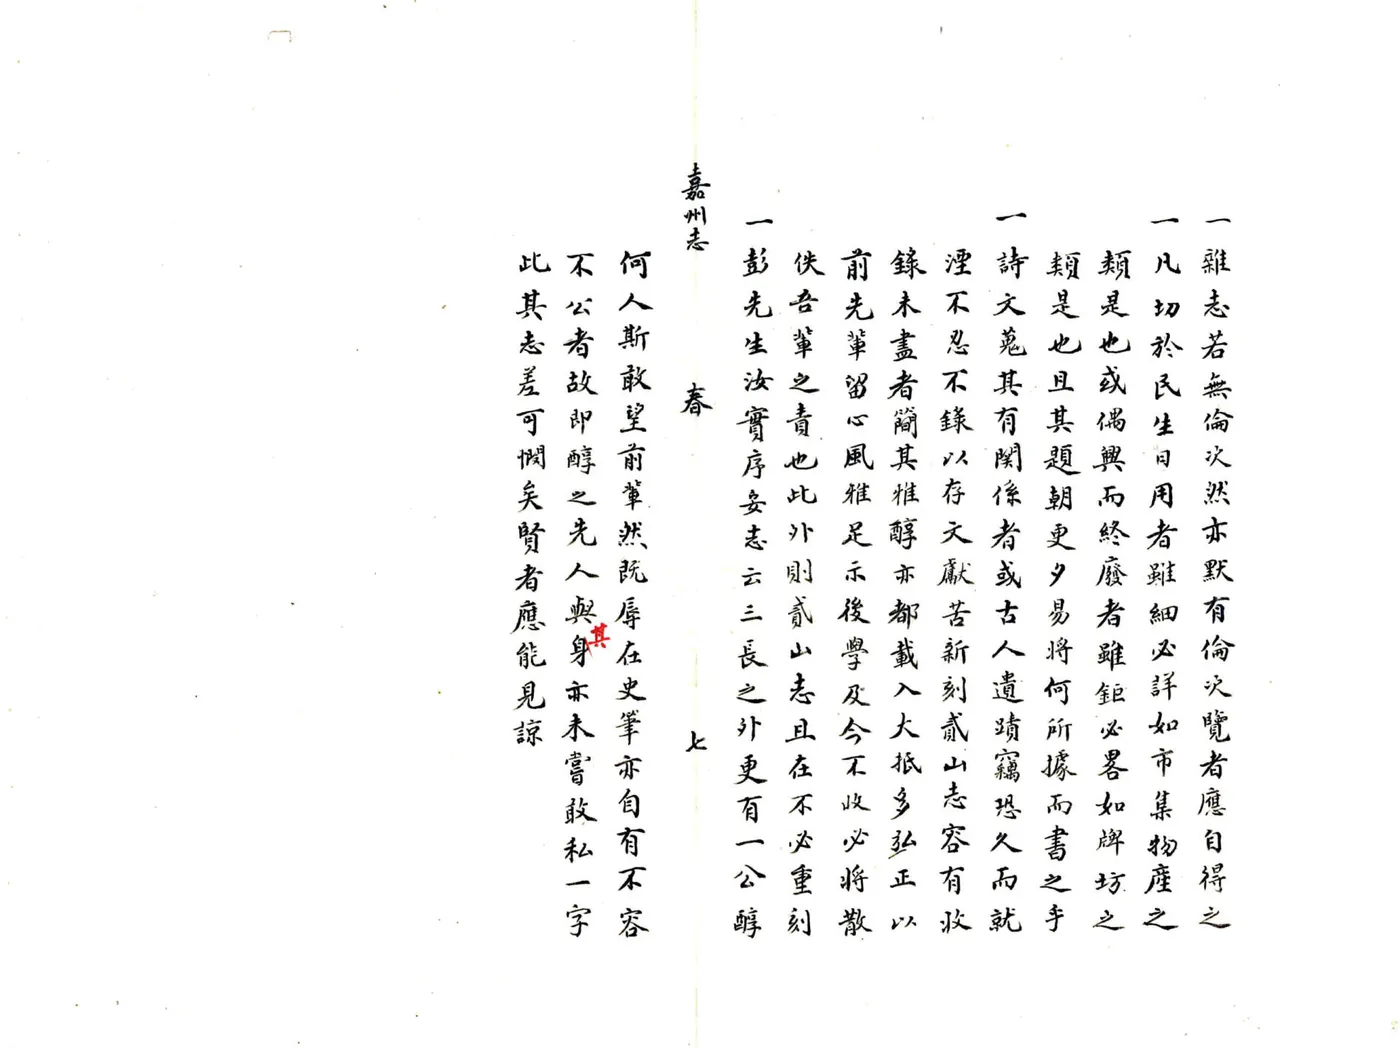 一雜志若無倫次然亦默有倫次覽者應自得之
一凡切於民生日用者雖細必詳如市集物產之
類是也或偶興而終廢者雖鉅必畧如牌坊之
類是也且其題朝更夕易將何所據而書之乎
一詩文蒐其有関係者或古人遺蹟竊恐久而就
湮不忍不錄以存文獻苦新刻貳山志容有收
錄未盡者簡其雅醇亦都載入大抵多弘正以
前先輩留心風雅足示後學及今不收必將散
佚吾輩之責也此外則貳山志且在不必重刻
一彭先生汝實序妄志云三長之外更有一公醇
嘉州志 春 七
何人斯敢望前輩然既辱在史筆亦自有不容
不公者故即醇之先人與其身亦未嘗敢私一字
此其志差可憫矣賢者應能見諒